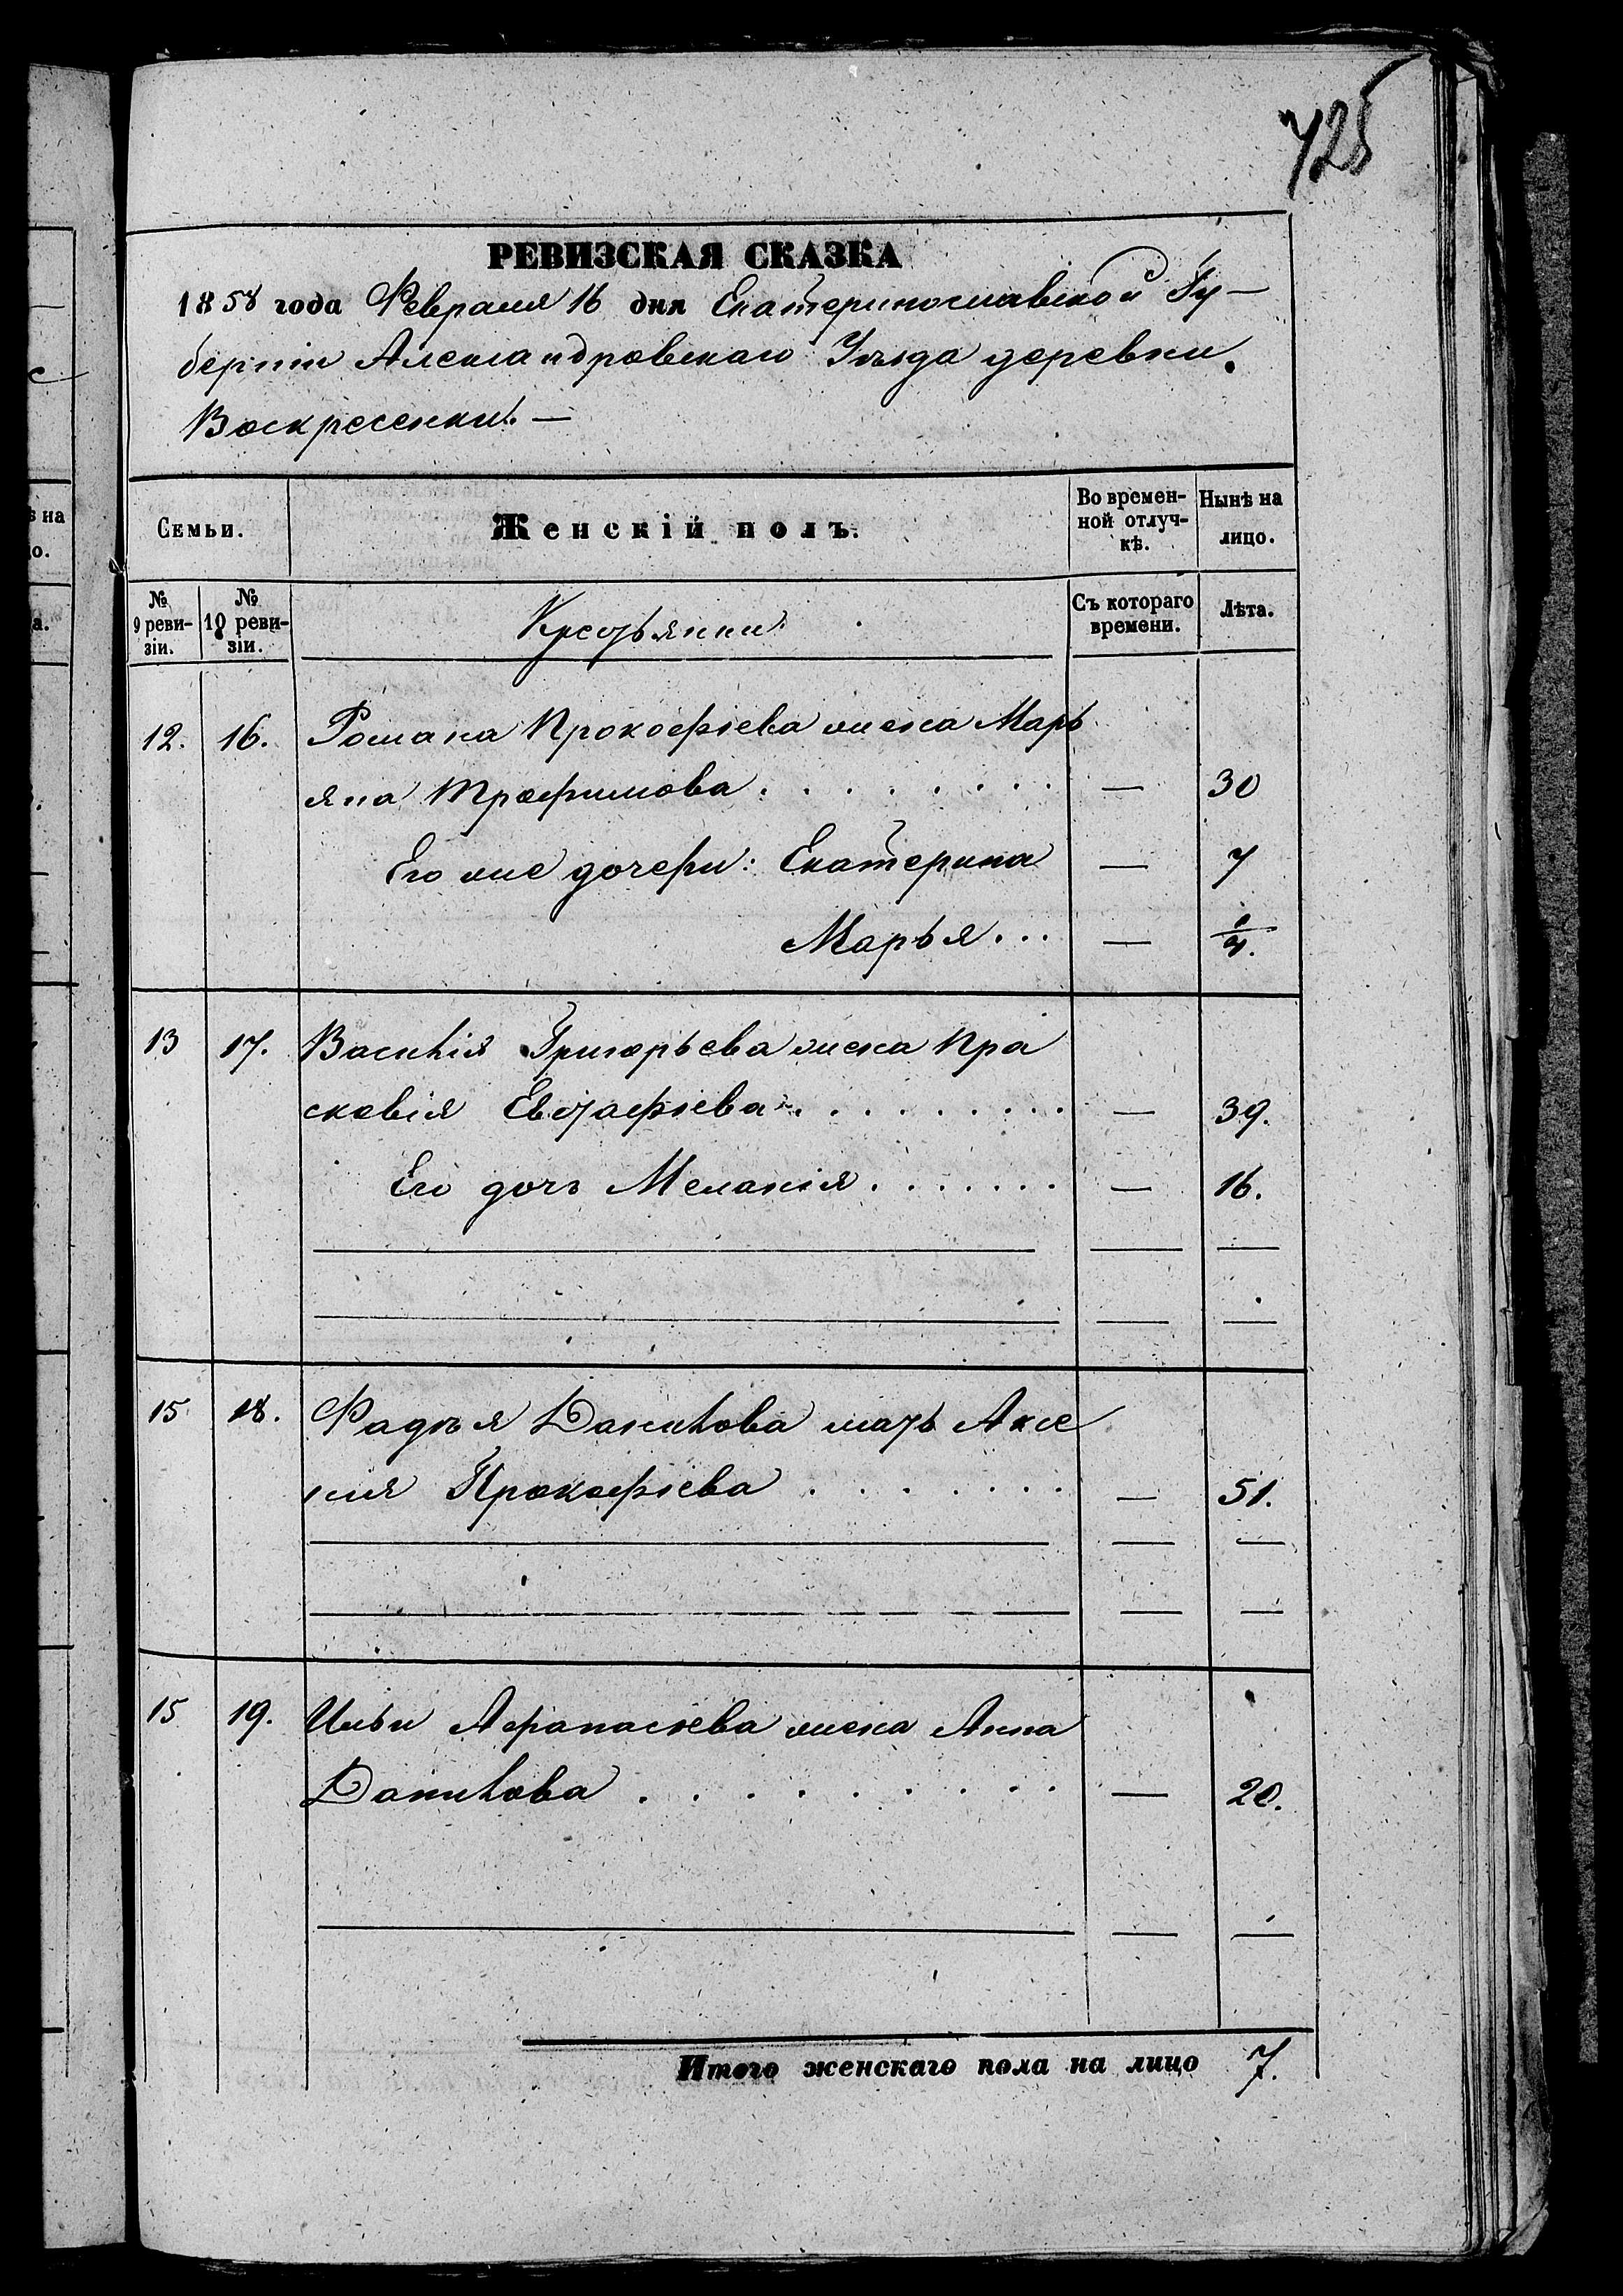 725
РЕВИЗСКАЯ СКАЗКА
1858 года Февраля 16 дня Екатеринославской Гу-
берніи Александровскаго Уѣзда деревни
Воскресенки. —
Семьи. Женскій полъ. Во времен-ной отлуч-кѣ. Нынѣ на лицо.
№ 9 реви-зіи. № 10 реви-зіи. Крестьянки Съ котораго времени. Лѣта.
12. 16. Романа Прокофіева жена Марь
яна Трофимова . . . . . . . — 30
Его же дочери: Екатерина — 7
Марья . . . — 1/4.
13 17. Василія Григорьева жена Пра
сковія Евстафіева . . . . . . . — 39.
Его дочь Меланія . . . . . . . — 16.
15 18. Фадѣя Данилова мать Аксе
нія Прокофіева . . . . . . . — 51.
15 19. Ильи Афанасіева жена Анна
Данилова . . . . . . . . . — 20.
Итого женскаго пола на лицо 7.
на
о.
а.